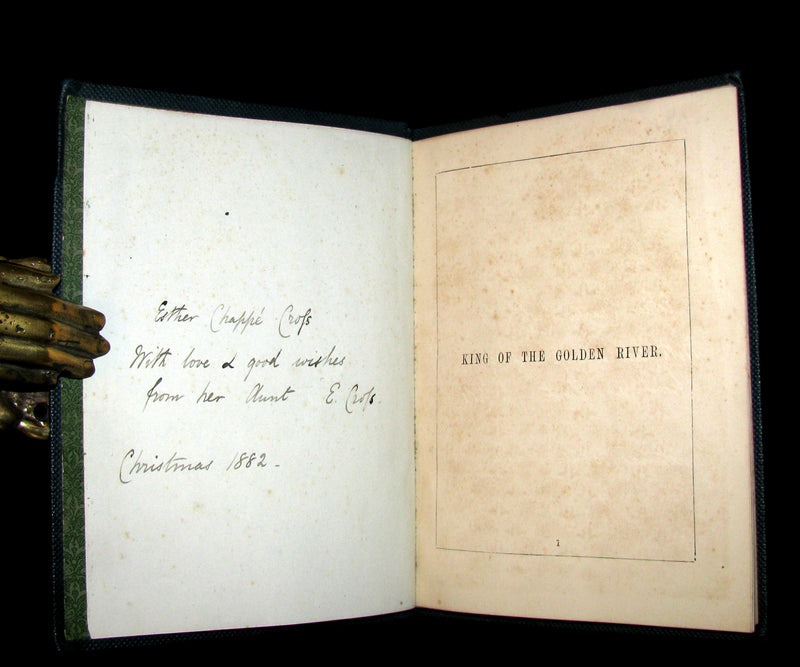 Esther Chappé Croſs
With love & good wishes
from her Aunt E. Croſs.
Christmas 1882 -
KING OF THE GOLDEN RIVER.
1